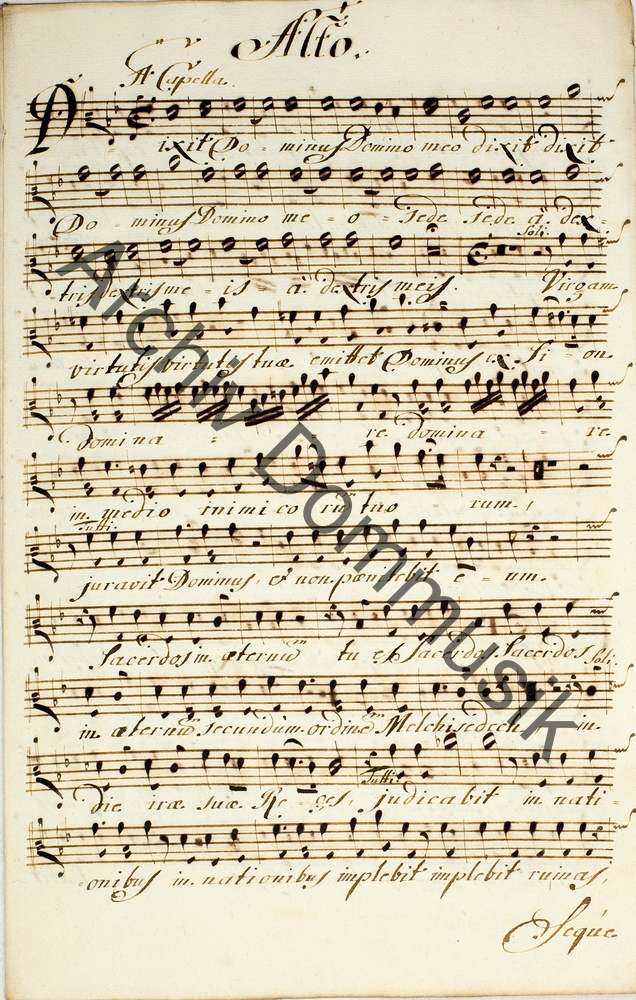 Alto.
A Capella.
Dixit Do - minus Domino meo dixit dixit
Do - minus Domino me - o - sede sede à dex -
Soli.
tris dextris me - is - à dextris meis. Virgam
virtutis virtutis tuæ emittet Dominus ex Si - on
domina - - re domina - re
in medio inimico rū tuo rum.
Tutti.
juravit Dominus, et non pænitebit e - um.
sacerdos in æternū tu es sacerdos sacerdos
Soli
in æternū secundum ordinē Melchisedech in
Tutti.
die iræ suæ Re - ges, judicabit in nati -
- onibus in nationibus implebit implebit ruinas,
Seque
Archiv Dommusik